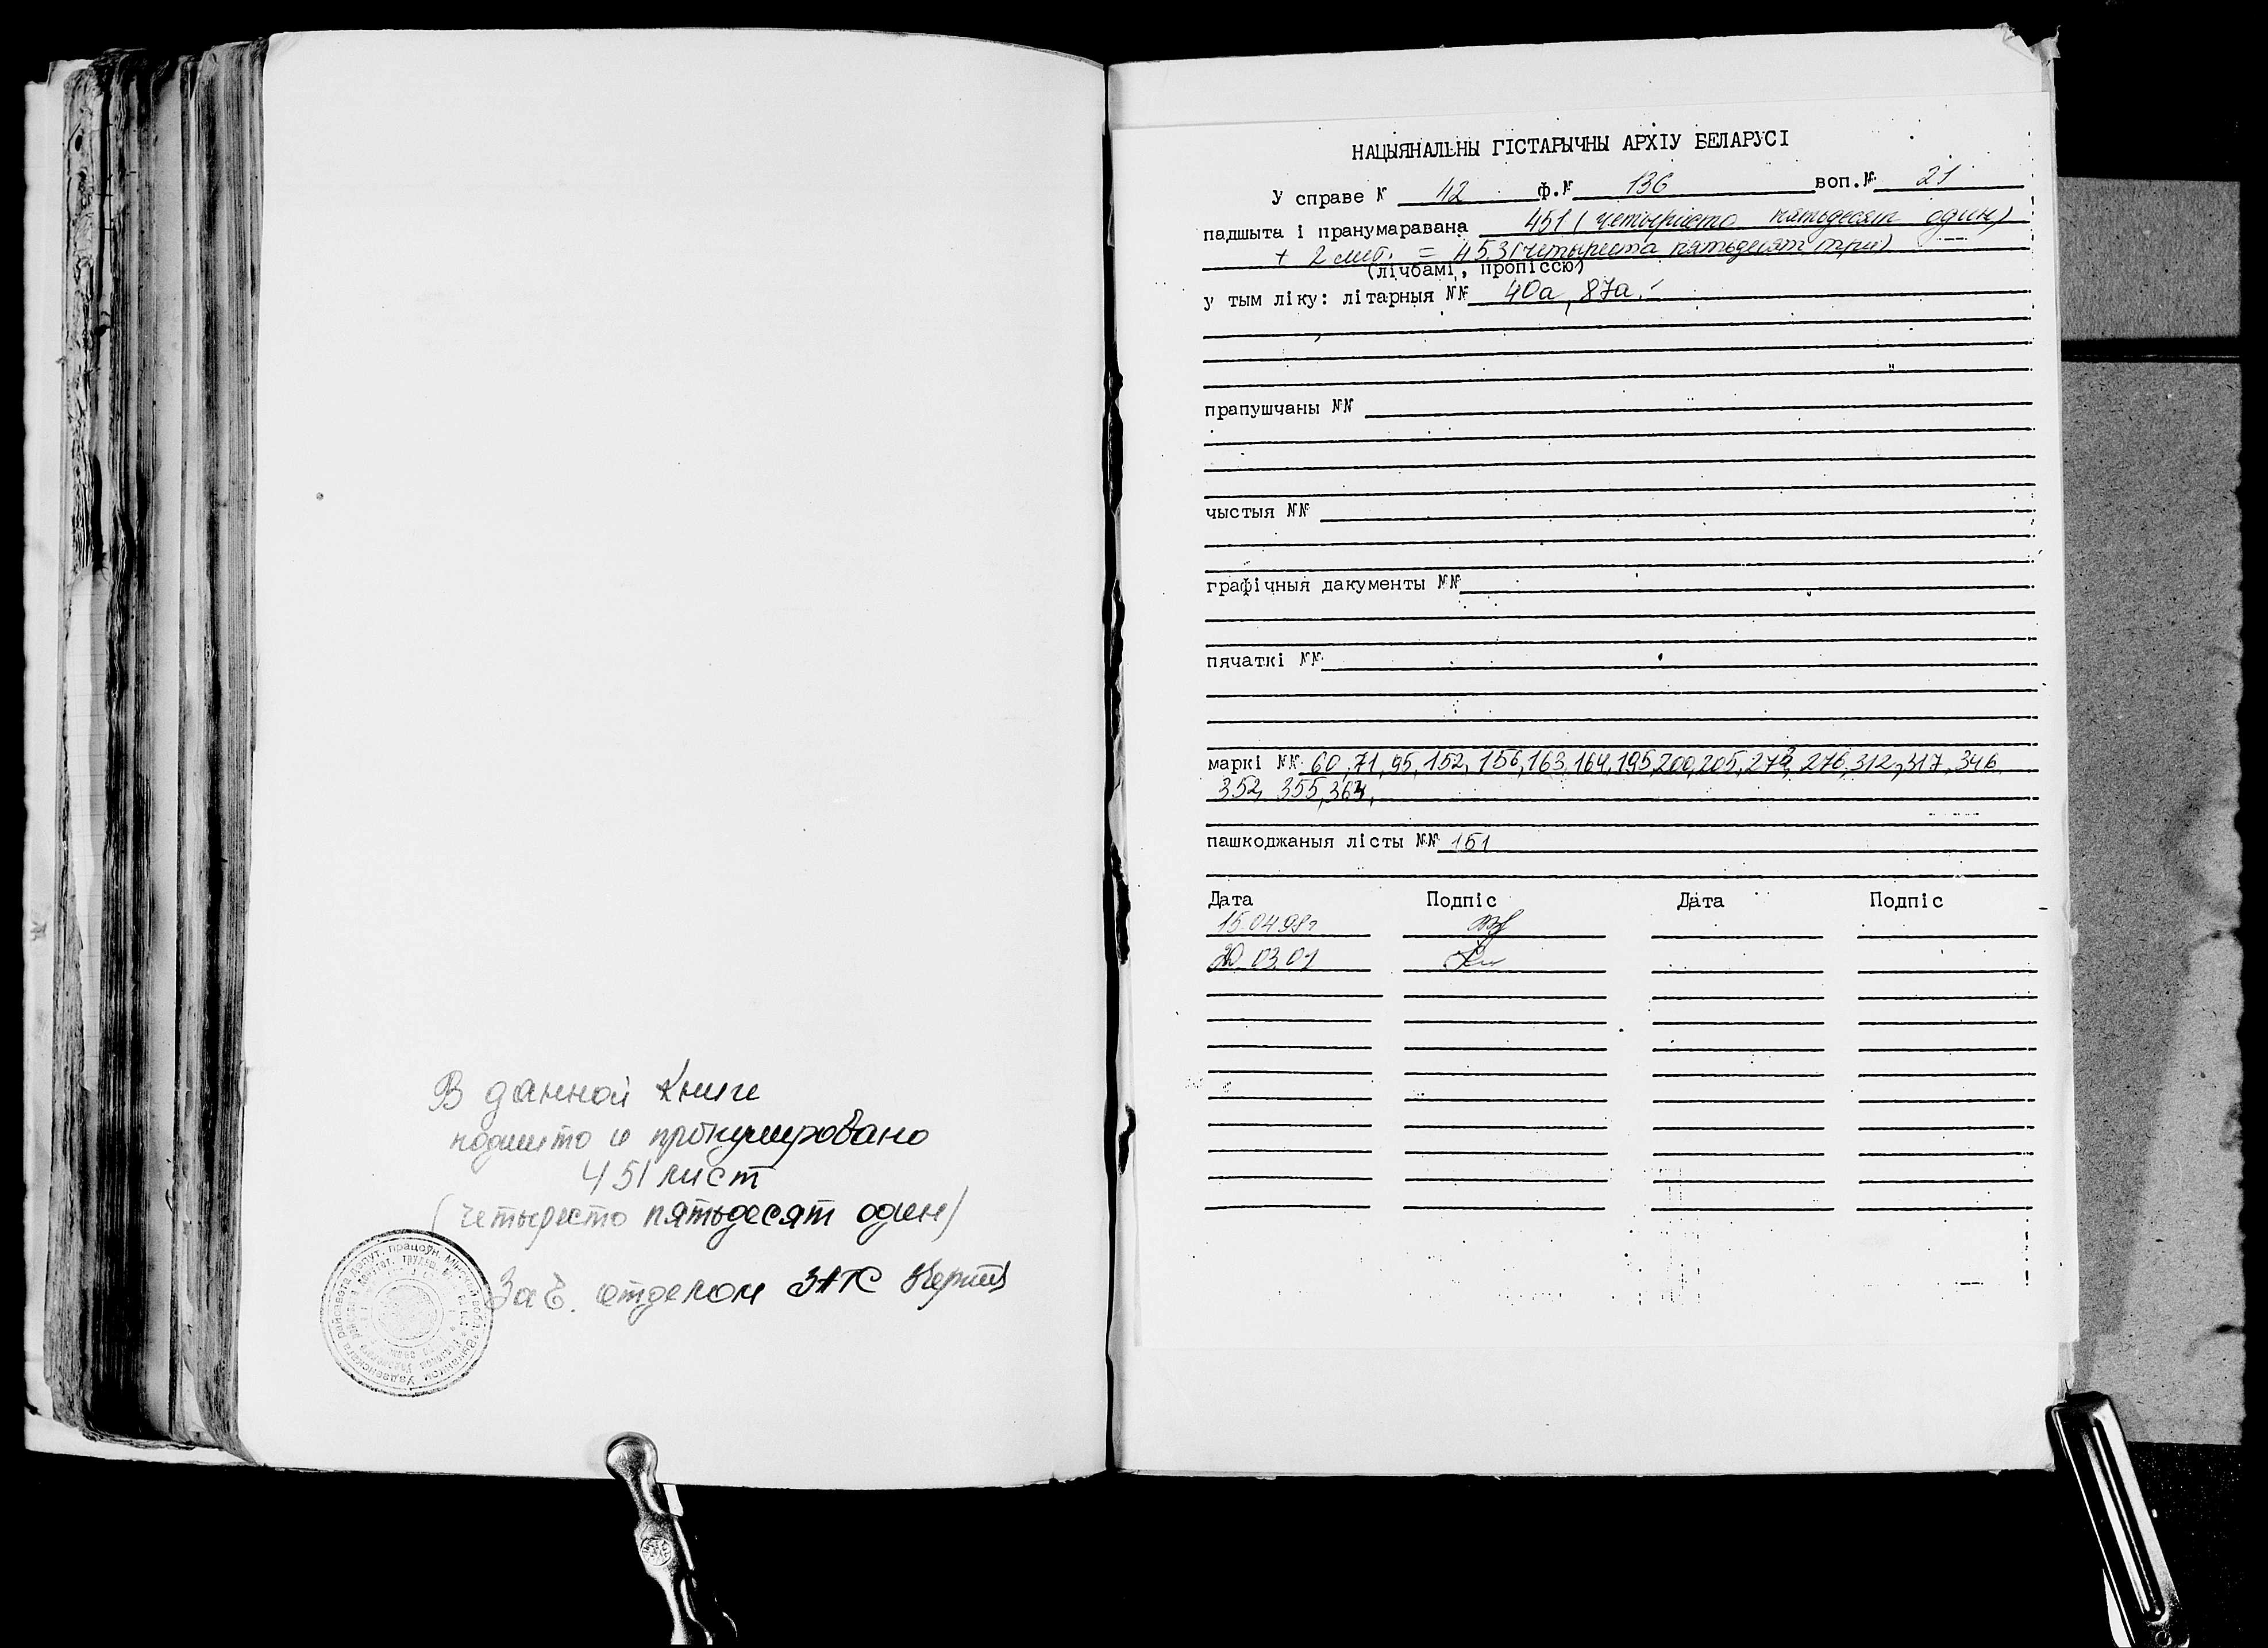 В данной Книге
подшито и пронумировано
451 лист
(четыресто пятьдесят один)
Зав. отделом ЗАГС
НАЦЫЯНАЛЬНЫ ГІСТАРЫЧНЫ АРХІУ БЕЛАРУСІ
У справе № 42 ф.№ 136 воп.№ 21
падшыта і пранумаравана 451 (четыресто пятьдесят один)
+ 2 лит. = 453 (четыреста пятьдесят три)
(лічбамі, пропіссю)
у тым ліку: літарныя №№ 40а, 87а.
прапушчаны №№
чыстыя №№
графічныя дакументы №№
пячаткі №№
маркі №№ 60, 71, 95, 152, 156, 163, 164, 195, 200, 205, 273, 276, 312, 317, 346
352, 355, 364,
пашкоджаныя лісты №№ 151
Дата Подпіс Дата Подпіс
15.04.98г
20.03.01